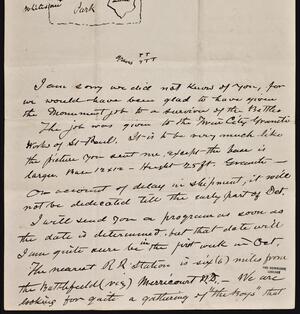 Whitestone
Park
I am sorry we did not know of you, for
we would have been glad to have given
the Monument job to a survivor of the Battle.
The job was given to the Twin City Granite
Works of St Paul. It is to be very much like
the picture you sent me, except the base is
larger Base 12x12 - Height 25 ft. Granite -
On account of delay in shipment, it will
not be dedicated till the early part of Oct.
I will send you a program as soon as
the date is determined - but that date will
I am quite sure be in the first week in Oct,
The nearest R.R. Station is six (6) miles from
the Battlefield (viz) Merricourt N.D. - We are
looking for quite a gathering of "the Boys" that